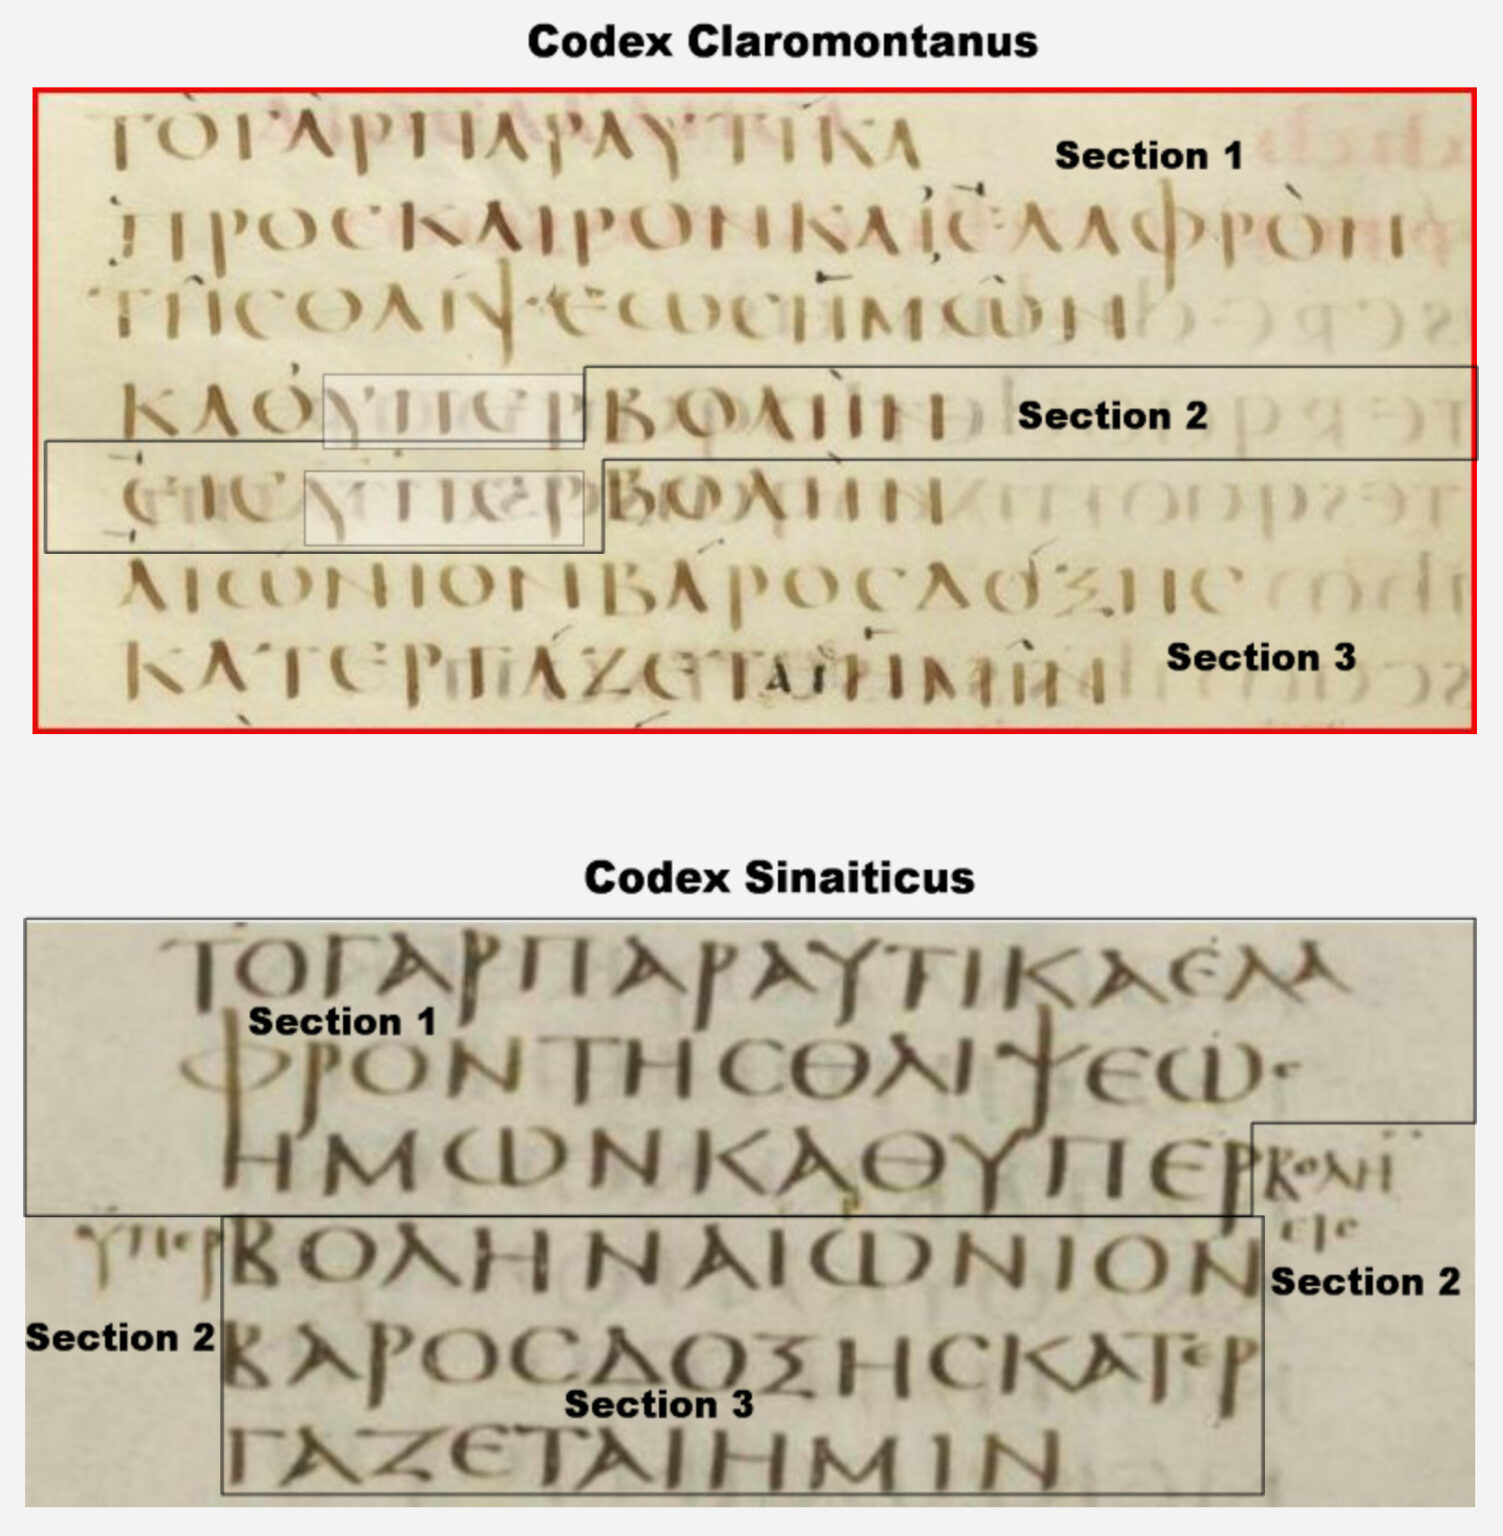 Codex Claromontanus
ΤΟΓΑΡΠΑΡΑΥΤΙΚΑ
Section 1
ΠΡΟΣΚΑΙΡΟΝΚΑΙΕΛΑΦΡΟΝ
ΤΗϹΘΛΙΨΕΩϹΗΜΩΝ
ΚΑΘΥΠΕΡΒΟΛΗΝ
Section 2
ΕΙϹΥΠΕΡΒΟΛΗΝ
ΑΙΩΝΙΟΝΒΑΡΟϹΔΟΞΗϹ
ΚΑΤΕΡΓΑΖΕΤΑΙΗΜΙΝ
Section 3
Codex Sinaiticus
ΤΟΓΑΡΠΑΡΑΥΤΙΚΑΕΛΑ
Section 1
ΦΡΟΝΤΗϹΘΛΙΨΕΩϹ
ΗΜΩΝΚΑΘΥΠΕΡΒΟΛΗ
ΕΙϹ
ΥΠΕΡΒΟΛΗΝΑΙΩΝΙΟΝ
Section 2
Section 2
ΒΑΡΟϹΔΟΞΗϹΚΑΤΕΡ
Section 3
ΓΑΖΕΤΑΙΗΜΙΝ